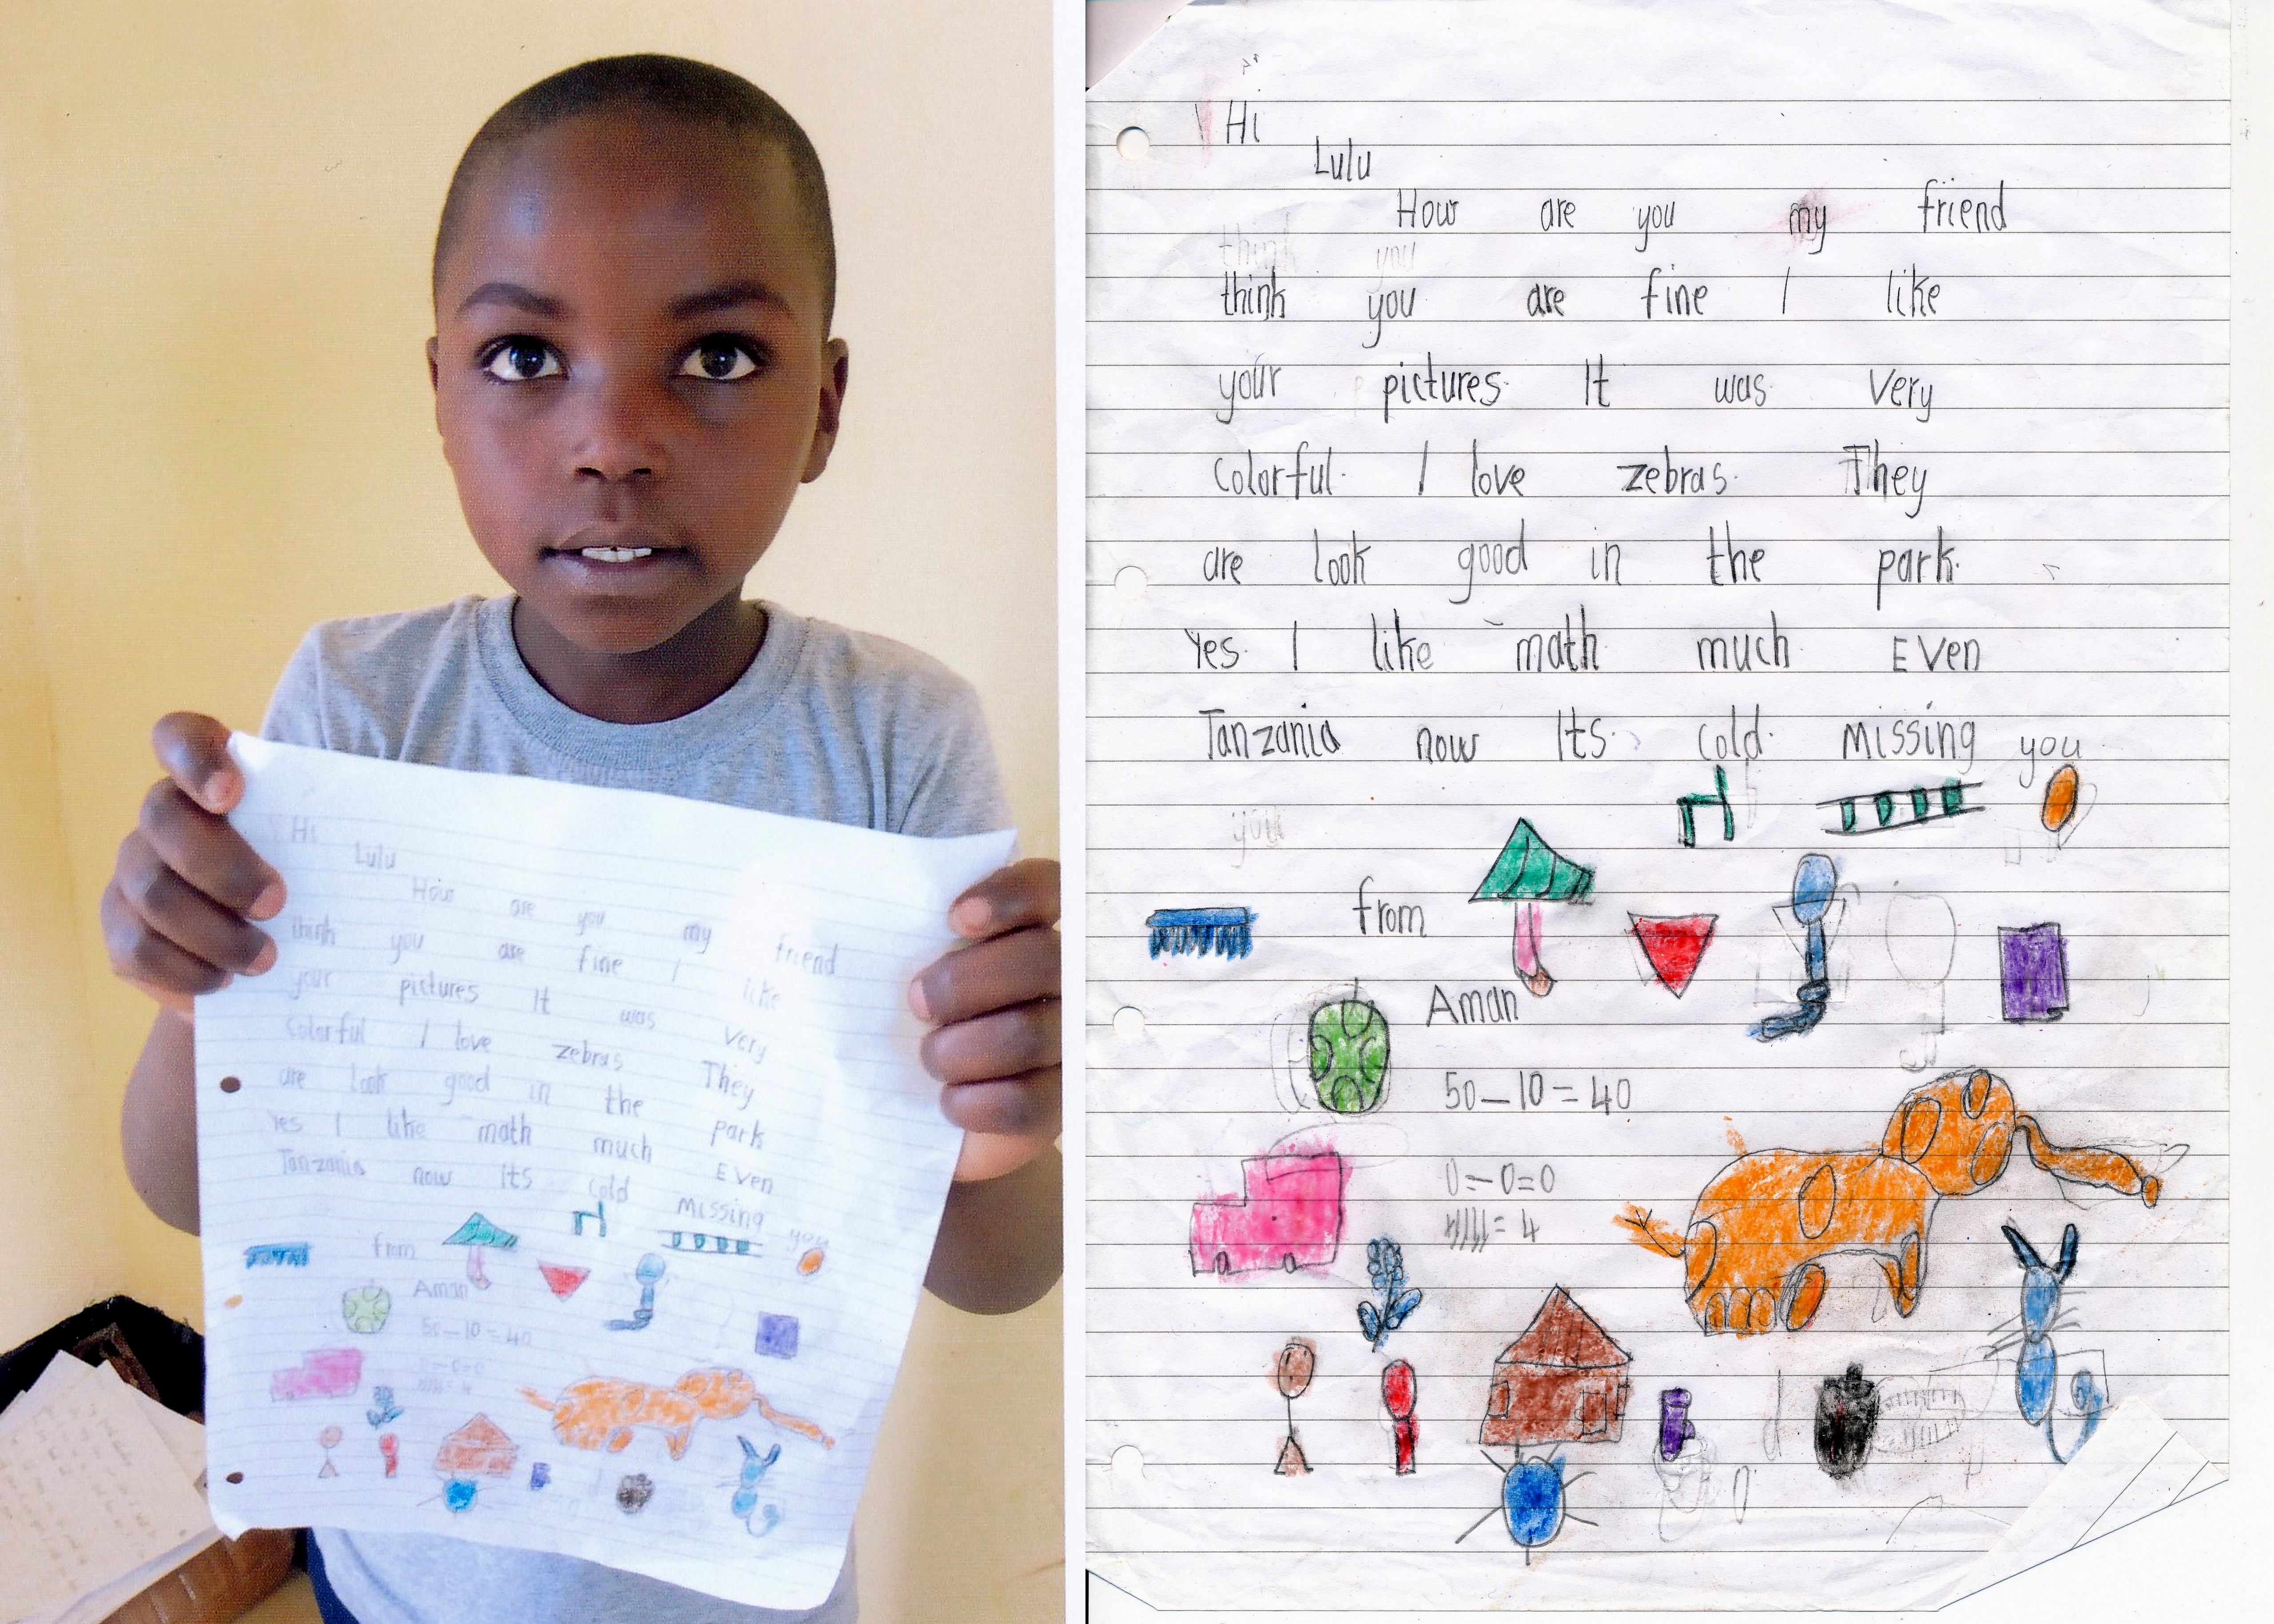 Hi
Lulu
How are you my friend
think you are fine I like
your pictures It was Very
Colorful I love zebras They
are look good in the park
Yes I like math much EVen
Tanzania now Its Cold Missing you
from
Aman
50-10=40
Hi
Lulu
How are you my friend
think you
think you are fine I like
your pictures. It was Very
Colorful. I love zebras. They
are look good in the park.
Yes I like math much EVen
Tanzania now Its Cold. Missing you
you
from
Aman
50-10=40
0-0=0
=4